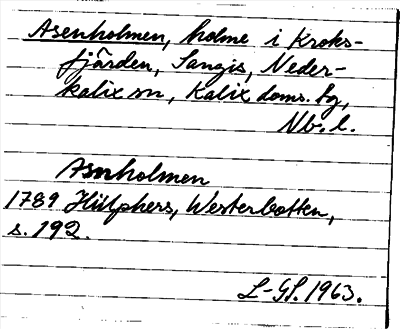 Asenholmen, holme i Kroks-
fjärden, Sangis, Neder-
kalix sn, Kalix doms. fg,
Nb. l.
Asnholmen
1789 Hülphers, Westerbotten,
s. 192.
L-GS. 1963.